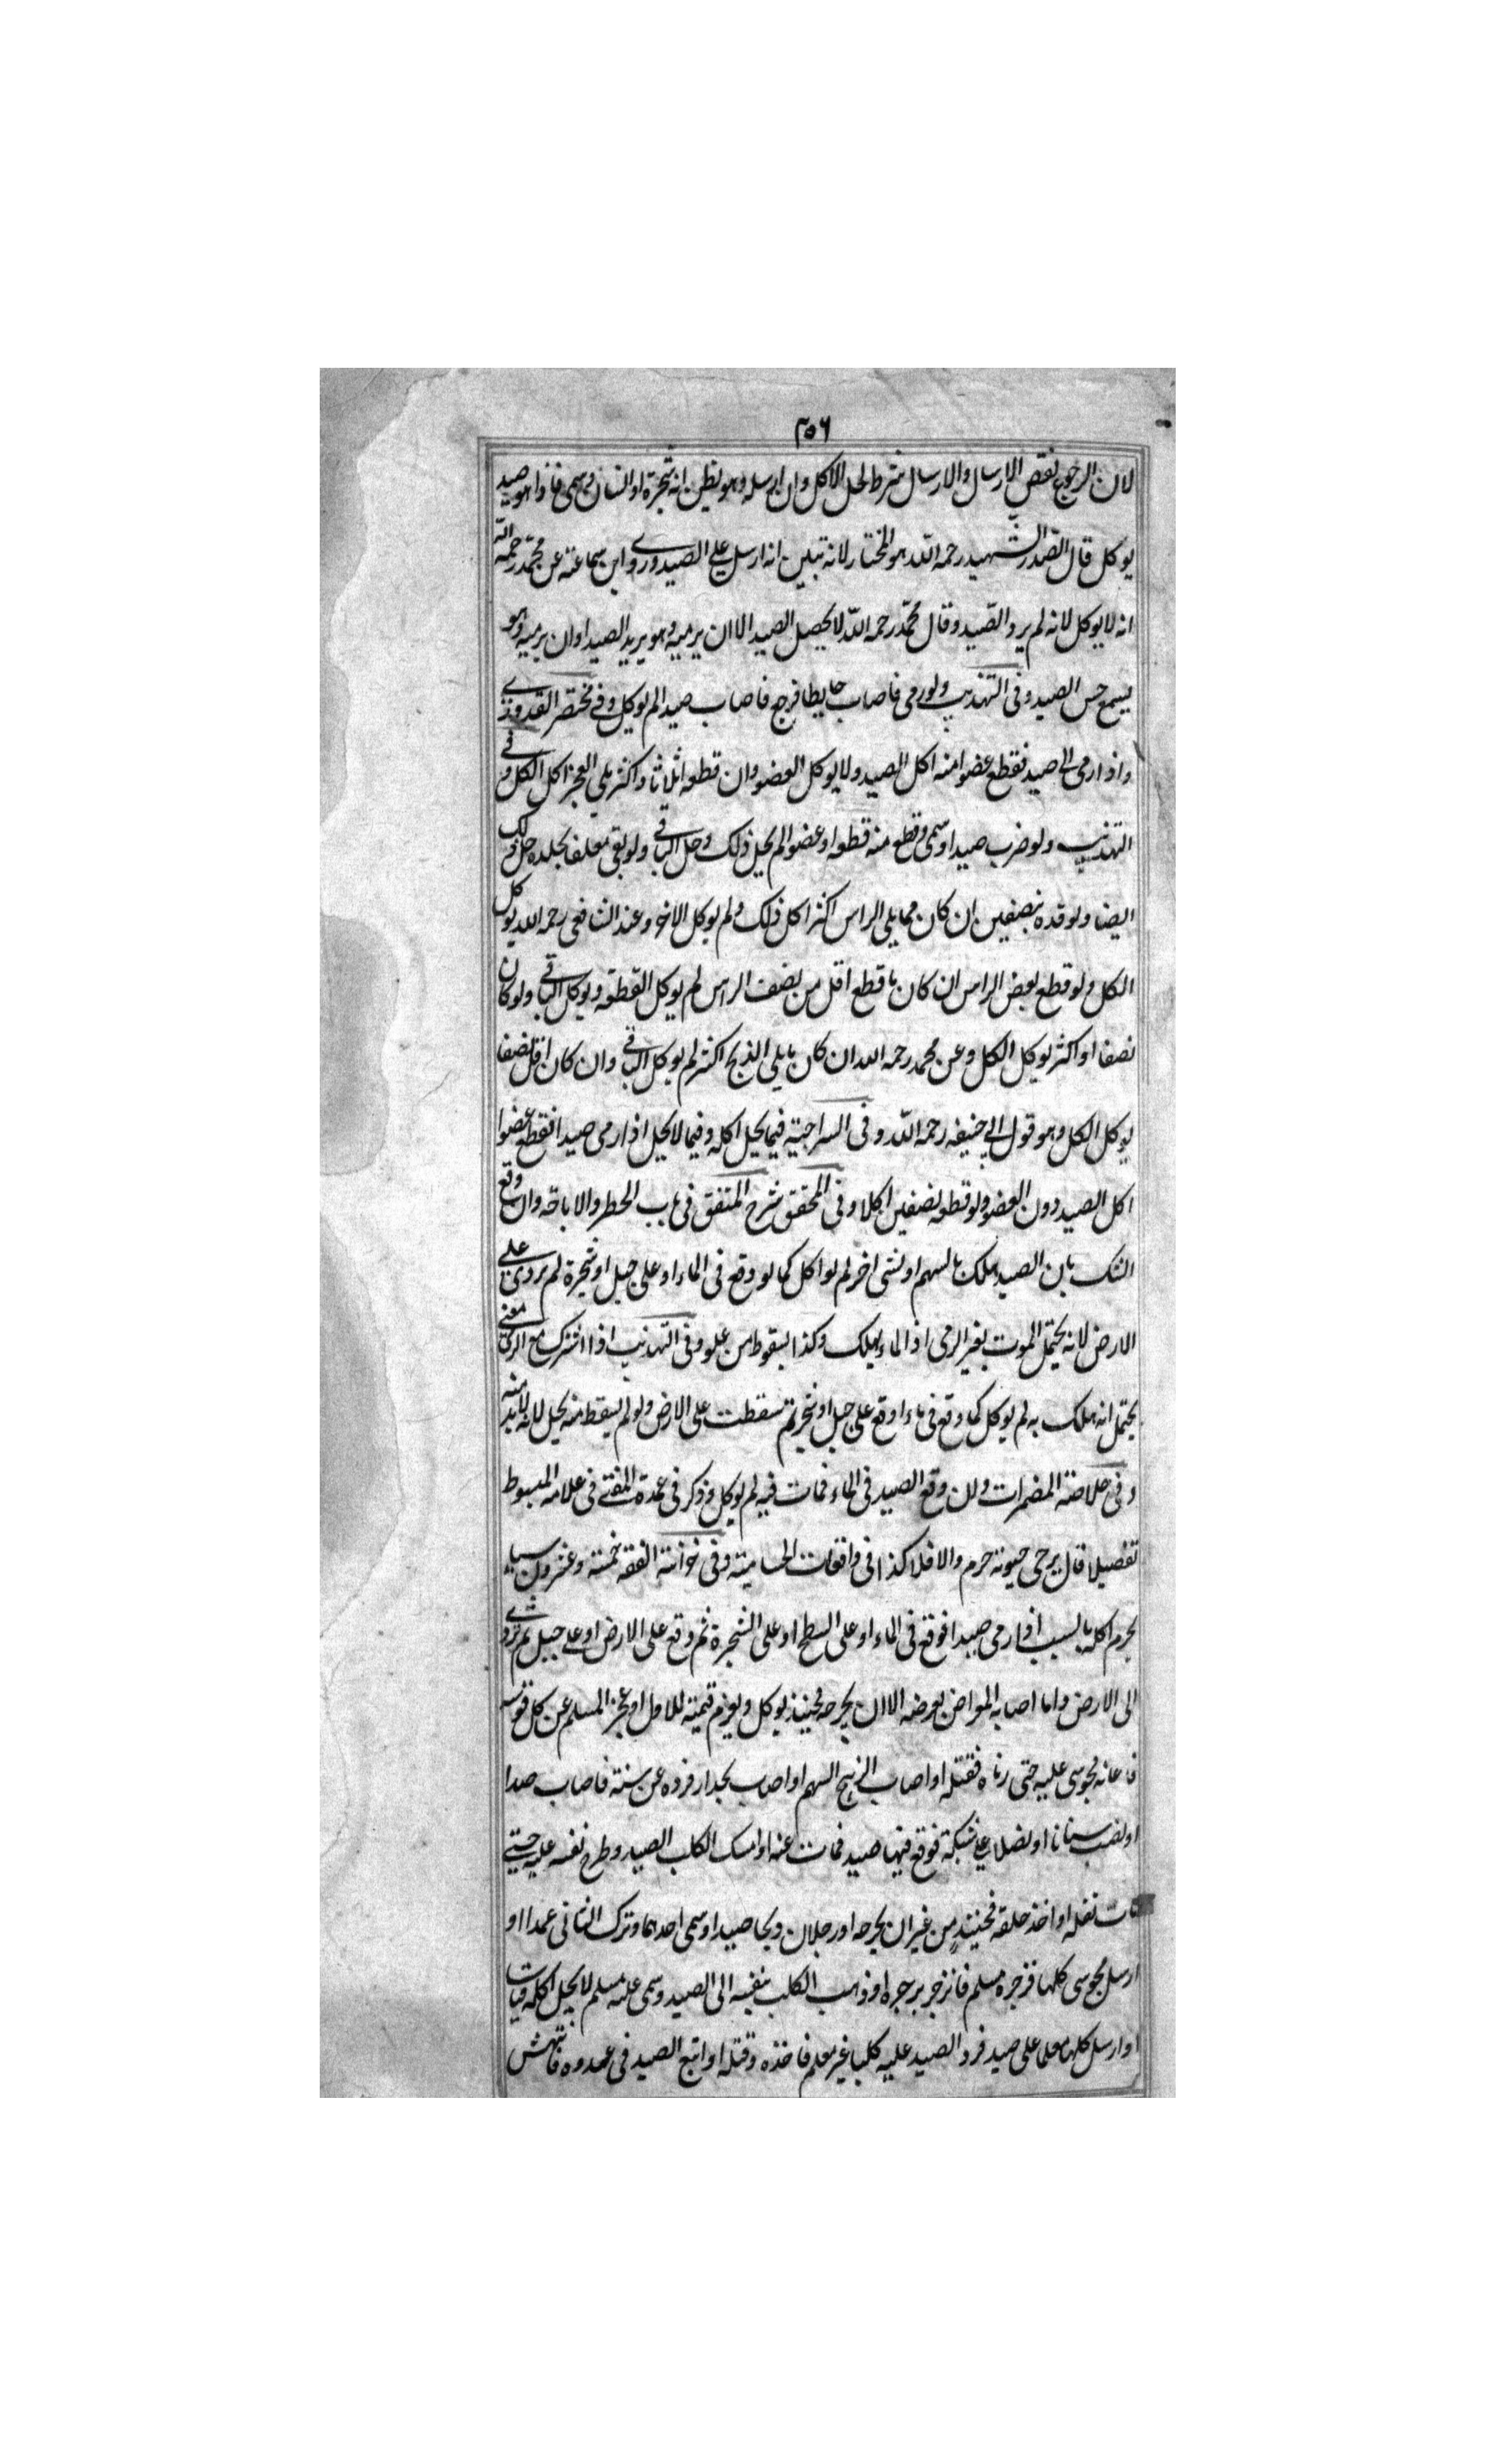 ٣٥٦
لان الرجوع نقض الارسال والارسال شرط لحل الاكل وان ارسله وهو يظن انه شجرة او انسان وسمى فاذا هو صيد
يوكل قال الصدر الشهيد رحمه الله هو المختار لانه تبين انه ارسل على الصيد وروى ابن سماعة عن محمد رحمه الله
انه لا يوكل لانه لم يرد الصيد وقال محمد رحمه الله لا يحصل الصيد الا ان يرميه وهو يريد الصيد او ان يرميه وهو
يسمع حس الصيد وفى التهذيب ولو رمى فاصاب حايطا فرجع فاصاب صيدا لم يوكل وفي مختصر القدورى
واذا رمى الى صيد فقطع عضوا منه اكل الصيد ولا يوكل العضو وان قطعه اثلاثا واكثر يلي العجز اكل الكل و في
التهذيب ولو ضرب صيدا وسمى وقطع منه قطعه او عضوا لم يحل ذلك وحل الباقي ولو بقى معلقا بجلده حل ذلك
ايضا ولو قده بنصفين ان كان مما يلى الراس اكثر اكل ذلك ولم يوكل الاخر وعند الشافعى رحمه الله يوكل
الكل ولو قطع بعض الراس ان كان ما قطع اقل من نصف الراس لم يوكل القطعة ويوكل الباقي ولو كان
نصفا او اكثر يوكل الكل وعن محمد رحمه الله ان كان ما يلى الذبح اكثر لم يوكل الباقي وان كان اقل نصفا
يوكل الكل وهو قول ابي حنيفه رحمه الله وفى السراجية فيما يحل اكله وفيما لا يحل اذا رمى صيدا فقطع عضوا
اكل الصيد دون العضو ولو قطعه نصفين اكلا وفى المحقق شرح المتفق فى باب الحظر والاباحة وان وقع
الشك بان الصيد هلك بالسهم او بشى اخر لم يواكل كما لو وقع فى الماء او على جبل او شجرة لم تردى على
الارض لانه يحتمل الموت بغير الرمى اذ الماء يهلك وكذا السقوط من علو وفى التهذيب اذا اشترك مع الرمى معنى
يحتمل انه هلك به لم يوكل كما وقع فى ماء او وقع على جبل او شجر ثم سقطت على الارض ولو لم يسقط منه يحل لانه لا بد منه
وفى خلاصة المضمرات ولئن وقع الصيد فى الماء فمات فيه لم يوكل وذكر فى عمدة المفتى فى علامه المبسوط
تفصيلا قال يرجى حيوته حرم والا فلا كذا فى واقعات الحسامية وفى خزانة الفقه خمسة وعشرون سيا
يحرم اكله بالسبب اذا رمى صيدا فوقع فى الماء او على السطح او على الشجرة ثم وقع على الارض او على جبل ثم تردى
الى الارض واما اصابه المعراض بعرضه الا ان يجرحه فحينئذ يوكل ويغرم قيمته للاول او عجز المسلم عن كل قوسه
فاعانه مجوسى عليه حتى رماه فقتله او اصاب الريح السهم او اصاب بجدار فرده عن سنته فاصاب صدا
او نصب سنانا او نصلا على شبكة فوقع فيها صيد فمات عنه او امسك الكلب الصيد وطرح نفسه عليه حتى
مات ثقله او اخذ حلقه فحينئذ من غير ان يجرحه او رجلان وبحا صيدا وسمى احدهما وترك الثانى عمدا او
ارسل مجوسى كلبها فزجره مسلم فانزجر بزجره او ذهب الكلب بنفسه الى الصيد وسمى عليه مسلم لا يحل اكله فمات
او ارسل كلبها معلما على صيد فرد الصيد عليه كلبا غير معلم فاخذه وقتله او اتبع الصيد فى عدوه فانتهش